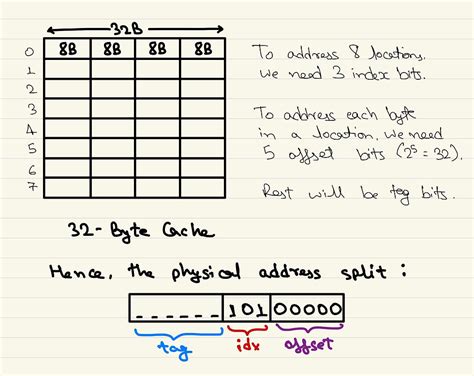 32B
0 8B 8B 8B 8B
1
2
3
4
5
6
7
To address 8 locations,
we need 3 index bits.
To address each byte
in a location, we need
5 offset bits (2⁵ = 32).
Rest will be tag bits.
32-Byte Cache
Hence, the physical address split :
_ _ _ _ _ _ 101 00000
tag idx offset